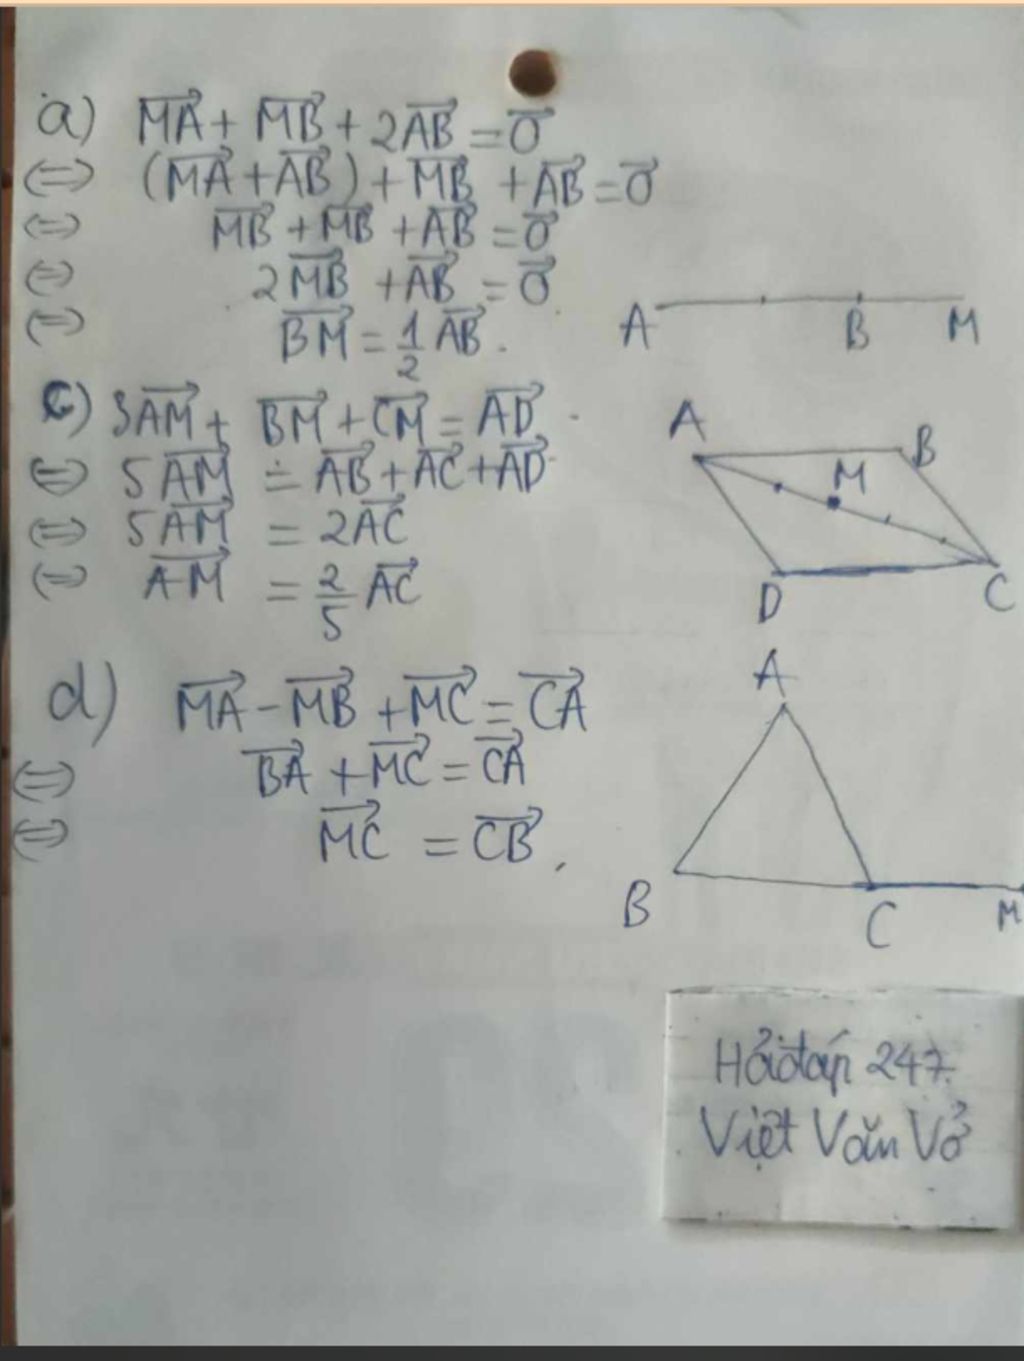 a) $\overrightarrow{MA} + \overrightarrow{MB} + 2\overrightarrow{AB} = \overrightarrow{0}$
⇔ $(\overrightarrow{MA} + \overrightarrow{AB}) + \overrightarrow{MB} + \overrightarrow{AB} = \overrightarrow{0}$
⇔ $\overrightarrow{MB} + \overrightarrow{MB} + \overrightarrow{AB} = \overrightarrow{0}$
⇔ $2\overrightarrow{MB} + \overrightarrow{AB} = \overrightarrow{0}$
⇔ $\overrightarrow{BM} = \frac{1}{2}\overrightarrow{AB}$.
A B M
c) $3\overrightarrow{AM} + \overrightarrow{BM} + \overrightarrow{CM} = \overrightarrow{AD}$.
⇔ $5\overrightarrow{AM} = \overrightarrow{AB} + \overrightarrow{AC} + \overrightarrow{AD}$
⇔ $5\overrightarrow{AM} = 2\overrightarrow{AC}$
⇔ $\overrightarrow{AM} = \frac{2}{5}\overrightarrow{AC}$
A B
M
D C
d) $\overrightarrow{MA} - \overrightarrow{MB} + \overrightarrow{MC} = \overrightarrow{CA}$
⇔ $\overrightarrow{BA} + \overrightarrow{MC} = \overrightarrow{CA}$
⇔ $\overrightarrow{MC} = \overrightarrow{CB}$.
A
B C M
Hỏi đáp 247.
Việt Văn Vở